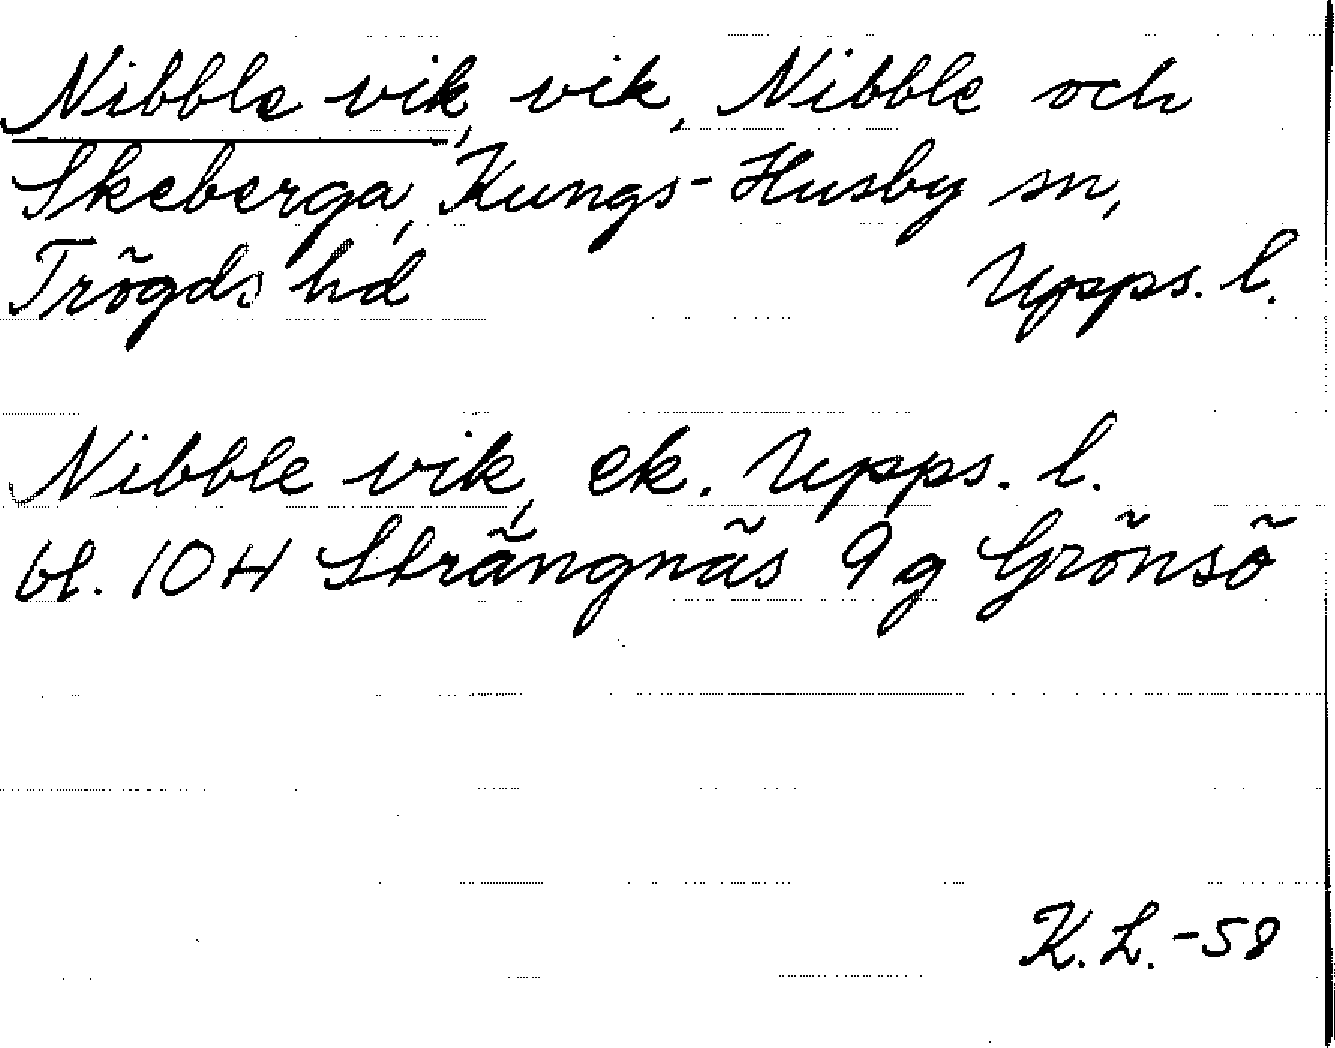 Nibble vik, vik, Nibble och
Skeberga, Kungs-Husby sn,
Trögds hd Upps. l.
Nibble vik, ek. Upps. l.
bl. 10 H Strängnäs 9 g Grönsö
K. L. -58